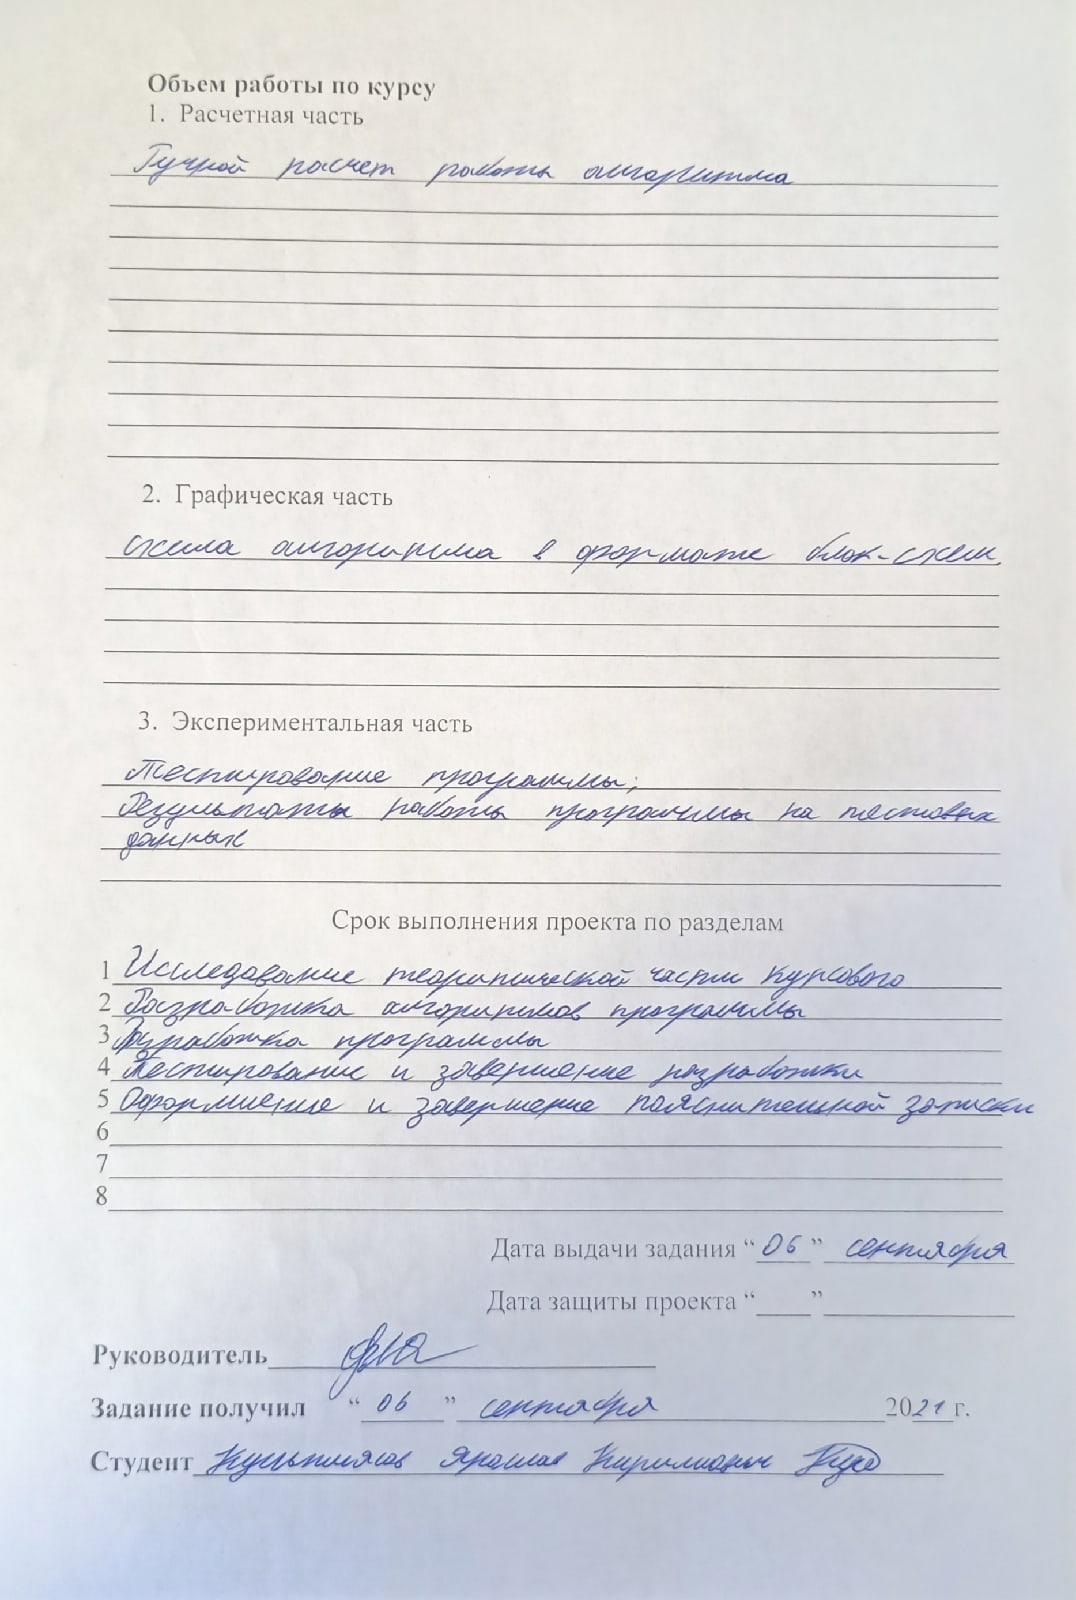 Объем работы по курсу
1. Расчетная часть
Ручной расчет работы алгоритма
2. Графическая часть
Схема алгоритма в формате блок-схем
3. Экспериментальная часть
Тестирование программы;
Результаты работы программы на тестовых
данных
Срок выполнения проекта по разделам
1 Исследование теоритической части курсового
2 Разработка алгоритмов программы
3 Разработка программы
4 Тестирование и завершение разработки
5 Оформление и завершение пояснительной записки
6
7
8
Дата выдачи задания “ 06 ” сентября
Дата защиты проекта “____”
Руководитель
Задание получил “ 06 ” сентября 2021 г.
Студент Кириллович